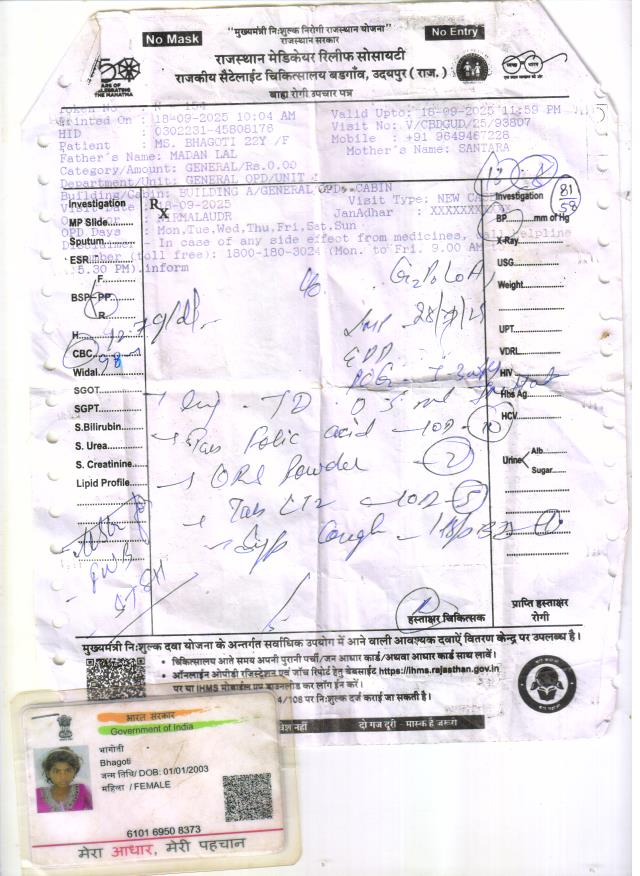 No Mask
"मुख्यमंत्री निःशुल्क निरोगी राजस्थान योजना"
No Entry
राजस्थान सरकार
राजस्थान मेडिकेयर रिलीफ सोसायटी
राजकीय सैटेलाईट चिकित्सालय बडगाँव, उदयपुर ( राज. )
बाह्य रोगी उपचार पत्र
Token No : N - 154
Printed On : 18-09-2025 10:04 AM
Valid Upto: 18-09-2025 11:59 PM
HID : 0302231-45808176
Visit No: V/CBDGUD/25/93807
Patient : MS. BHAGOTI 22Y /F
Mobile : +91 9649467228
Father's Name: MADAN LAL
Mother's Name: SANTARA
Category/Amount: GENERAL/Rs.0.00
Department/Unit: GENERAL OPD/UNIT
Building/Cabin: BUILDING A/GENERAL OPD CABIN
Visit Date 18-09-2025
Visit Type: NEW CA
JanAdhar : XXXXXXX
OPD Days : Mon,Tue,Wed,Thu,Fri,Sat,Sun
- In case of any side effect from medicines, call helpline
number (toll free): 1800-180-3024 (Mon. to Fri. 9.00 AM
5.30 PM).inform
Rx
Investigation
MP Slide
Sputum
ESR
F.
BSP PP
R.
H
12.7 g/dl
CBC
98
Widal
SGOT
SGPT
S.Bilirubin
S. Urea
S. Creatinine
Lipid Profile
Investigation
81
58
BP mm of Hg
X-Ray
USG
Weight
UPT
VDRL
HIV
Hbs Ag
HCV
Urine Alb.
Sugar
c/o G2P1L0A
LMP 28/7/25
EDD
Inj - TD 0.5 ml
Tab Folic acid - 10D - 10
ORS Powder 2
Tab CTZ - 10D 5
Syp Cough
हस्ताक्षर चिकित्सक
प्राप्ति हस्ताक्षर
रोगी
मुख्यमंत्री निःशुल्क दवा योजना के अन्तर्गत सर्वाधिक उपयोग में आने वाली आवश्यक दवाऐं वितरण केन्द्र पर उपलब्ध है।
• चिकित्सालय आते समय अपनी पुरानी पर्ची/जन आधार कार्ड/अथवा आधार कार्ड साथ लावें।
• ऑनलाईन ओपीडी रजिस्ट्रेशन एवं जाँच रिपोर्ट हेतु वेबसाईट https://ihms.rajasthan.gov.in
पर या IHMS मोबाईल एप डाउनलोड कर लॉग ईन करें।
4/108 पर निःशुल्क दर्ज कराई जा सकती है।
प्रवेश नहीं
दो गज दूरी - मास्क है जरूरी
भारत सरकार
Government of India
भागोती
Bhagoti
जन्म तिथि/ DOB: 01/01/2003
महिला / FEMALE
6101 6950 8373
मेरा आधार, मेरी पहचान